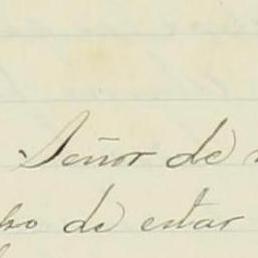 Señor de
de estar